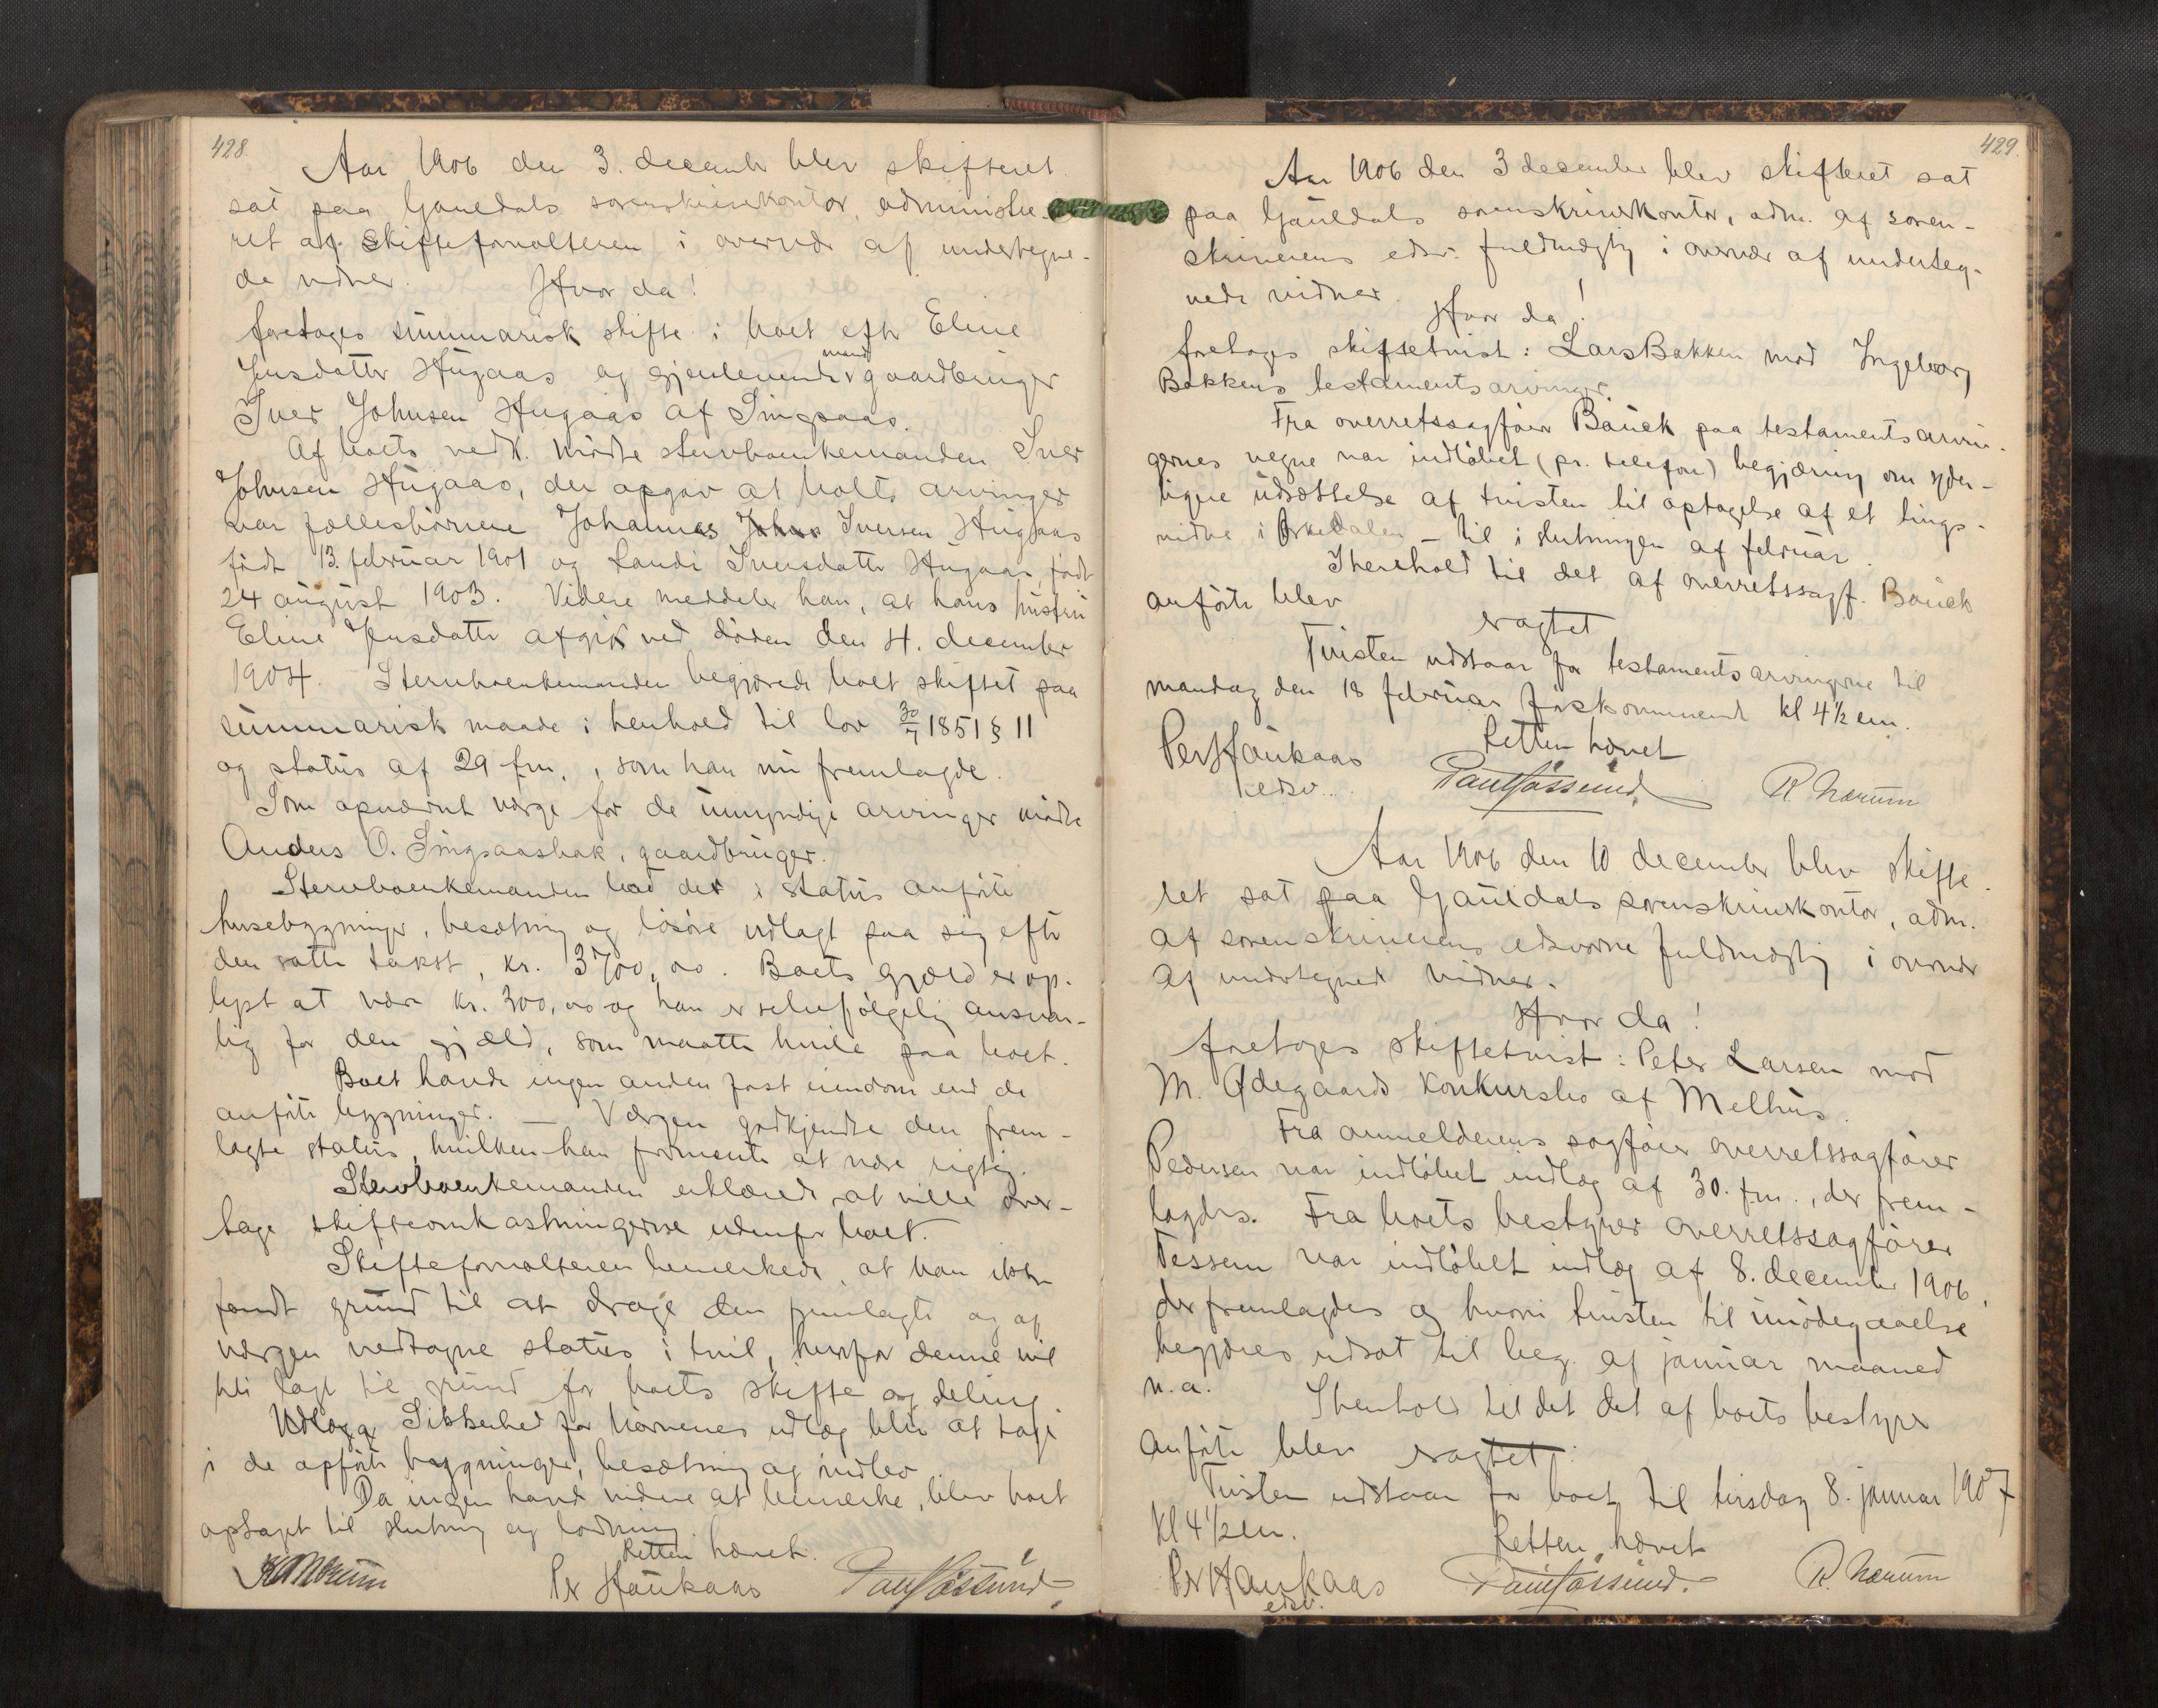 428.
Aar 1906 den 3. decembr blev skifteret
sat paa Gauldals sorenskriverkontor, administre-
ret af skifteforvalteren i overvær af undertegne-
de vidner. Hvor da!
foretoges summarisk skifte i boet eftr Eline
Jensdattr Hugaas og gjenlevende mand gaardbruger
Iver Johnsen Hugaas af Singsaas.
Af boets vedk. mødte stervboenkemanden Iver
Johnsen Hugaas, der opgav at boets arvinger
var fællesbørnene Johannes Johns Iversen Hugaas
født 13. februar 1901 og Iversdattr Hugaas, født
24 august 1903. Videre meddeler han, at hans hustru
Eline Jensdattr afgik ved døden den 4. december
1904. Stervboenkemanden begjærede boet skiftet paa
summarisk maade i henhold til lov 30/7 1851 § 11
og status af 29 f.m., som han nu fremlagde.
Som opnævnt værge for de umyndige arvinger mødte
Anders O. Singsaasbak, gaardbruger.
Stervboenkemanden bad de i status anførte
husebygninger, besætning og løsøre udlagt paa sig eftr
den satte takst, kr. 3700,00. Boets gjæld er op-
lyst at være kr. 300,00 og han er selvfølgelig ansvar-
lig for den gjæld, som maatte hvile paa boet.
Boet havde ingen anden fast eiendom end de
anførte bygninger. — Værgen godkjendte den frem-
lagte status, hvilken han formente at være rigtig.
Stervboenkemanden erklærede at ville over-
tage skifteomkastningerne udenfor boet.
Skifteforvalteren bemerkede, at han ikke
fandt grund til at drage den fremlagte og af
værgen vedtagne status i tvil, hvorfor denne vil
bli lagt til grund for boets skifte og deling.
Udlæga Sikkerhed for børnenes udlæg blir at tage
i de opførte bygninger, besætning og indbo
Da ingen havde videre at bemerke, blev boet
optaget til slutning og lodning.
Retten hævet.
Per Haukaas Paul Fossund
429.
Aar 1906 den 3 december blev skifteret sat
paa Gauldals sorenskriverkontor, adm. af soren-
skriverens edsv. fuldmægtig i overvær af underteg-
nede vidner.
Hvor da!
foretoges skiftetvist: Lars Bakken mod Ingeborg
Bakkens testamentsarvinger.
Fra overretssagfører Bauck paa testamentsarvin-
gernes vegne var indløbet (pr. telefon) begjæring om yder-
ligere udsættelse af tvisten til optagelse af et tings-
vidne i Orkedalen — til i slutningen af februar.
I henhold til det af overretssagf. Bauck
anførte blev
eragtet
Tvisten udstaar for testamentsarvingerne til
mandag den 18 februar førstkommende kl 4½ em.
Retten hævet
Per Haukaas
edsv. Paul Fossund R. Nærum
Aar 1906 den 10 december blev skifte-
ret sat paa Gauldals sorenskriverkontor, adm.
af sorenskriverens edsvorne fuldmægtig i overvær
af undertegnede vidner.
Hvor da!
foretoges skiftetvist: Peter Larsen mod
M. Ødegaards konkursbo af Melhus.
Fra anmelderens sagfører overretssagfører
Pedersen var indløbet indlæg af 30. f.m., der frem-
lagdes. Fra boets bestyrer overretssagfører
Tessem var indløbet indlæg af 8. december 1906,
der fremlagdes og hvori tvisten til imødegaaelse
begjæres udsat til beg. af januar maaned
n.a. I henhold til det det af boets bestyrer
anførte blev eragtet:
Tvisten udstaar for boet til tirsdag 8. januar 1907
kl 4½ em.
Retten hævet
Per Haukaas
edsv. Paul Fossund. R. Nærum